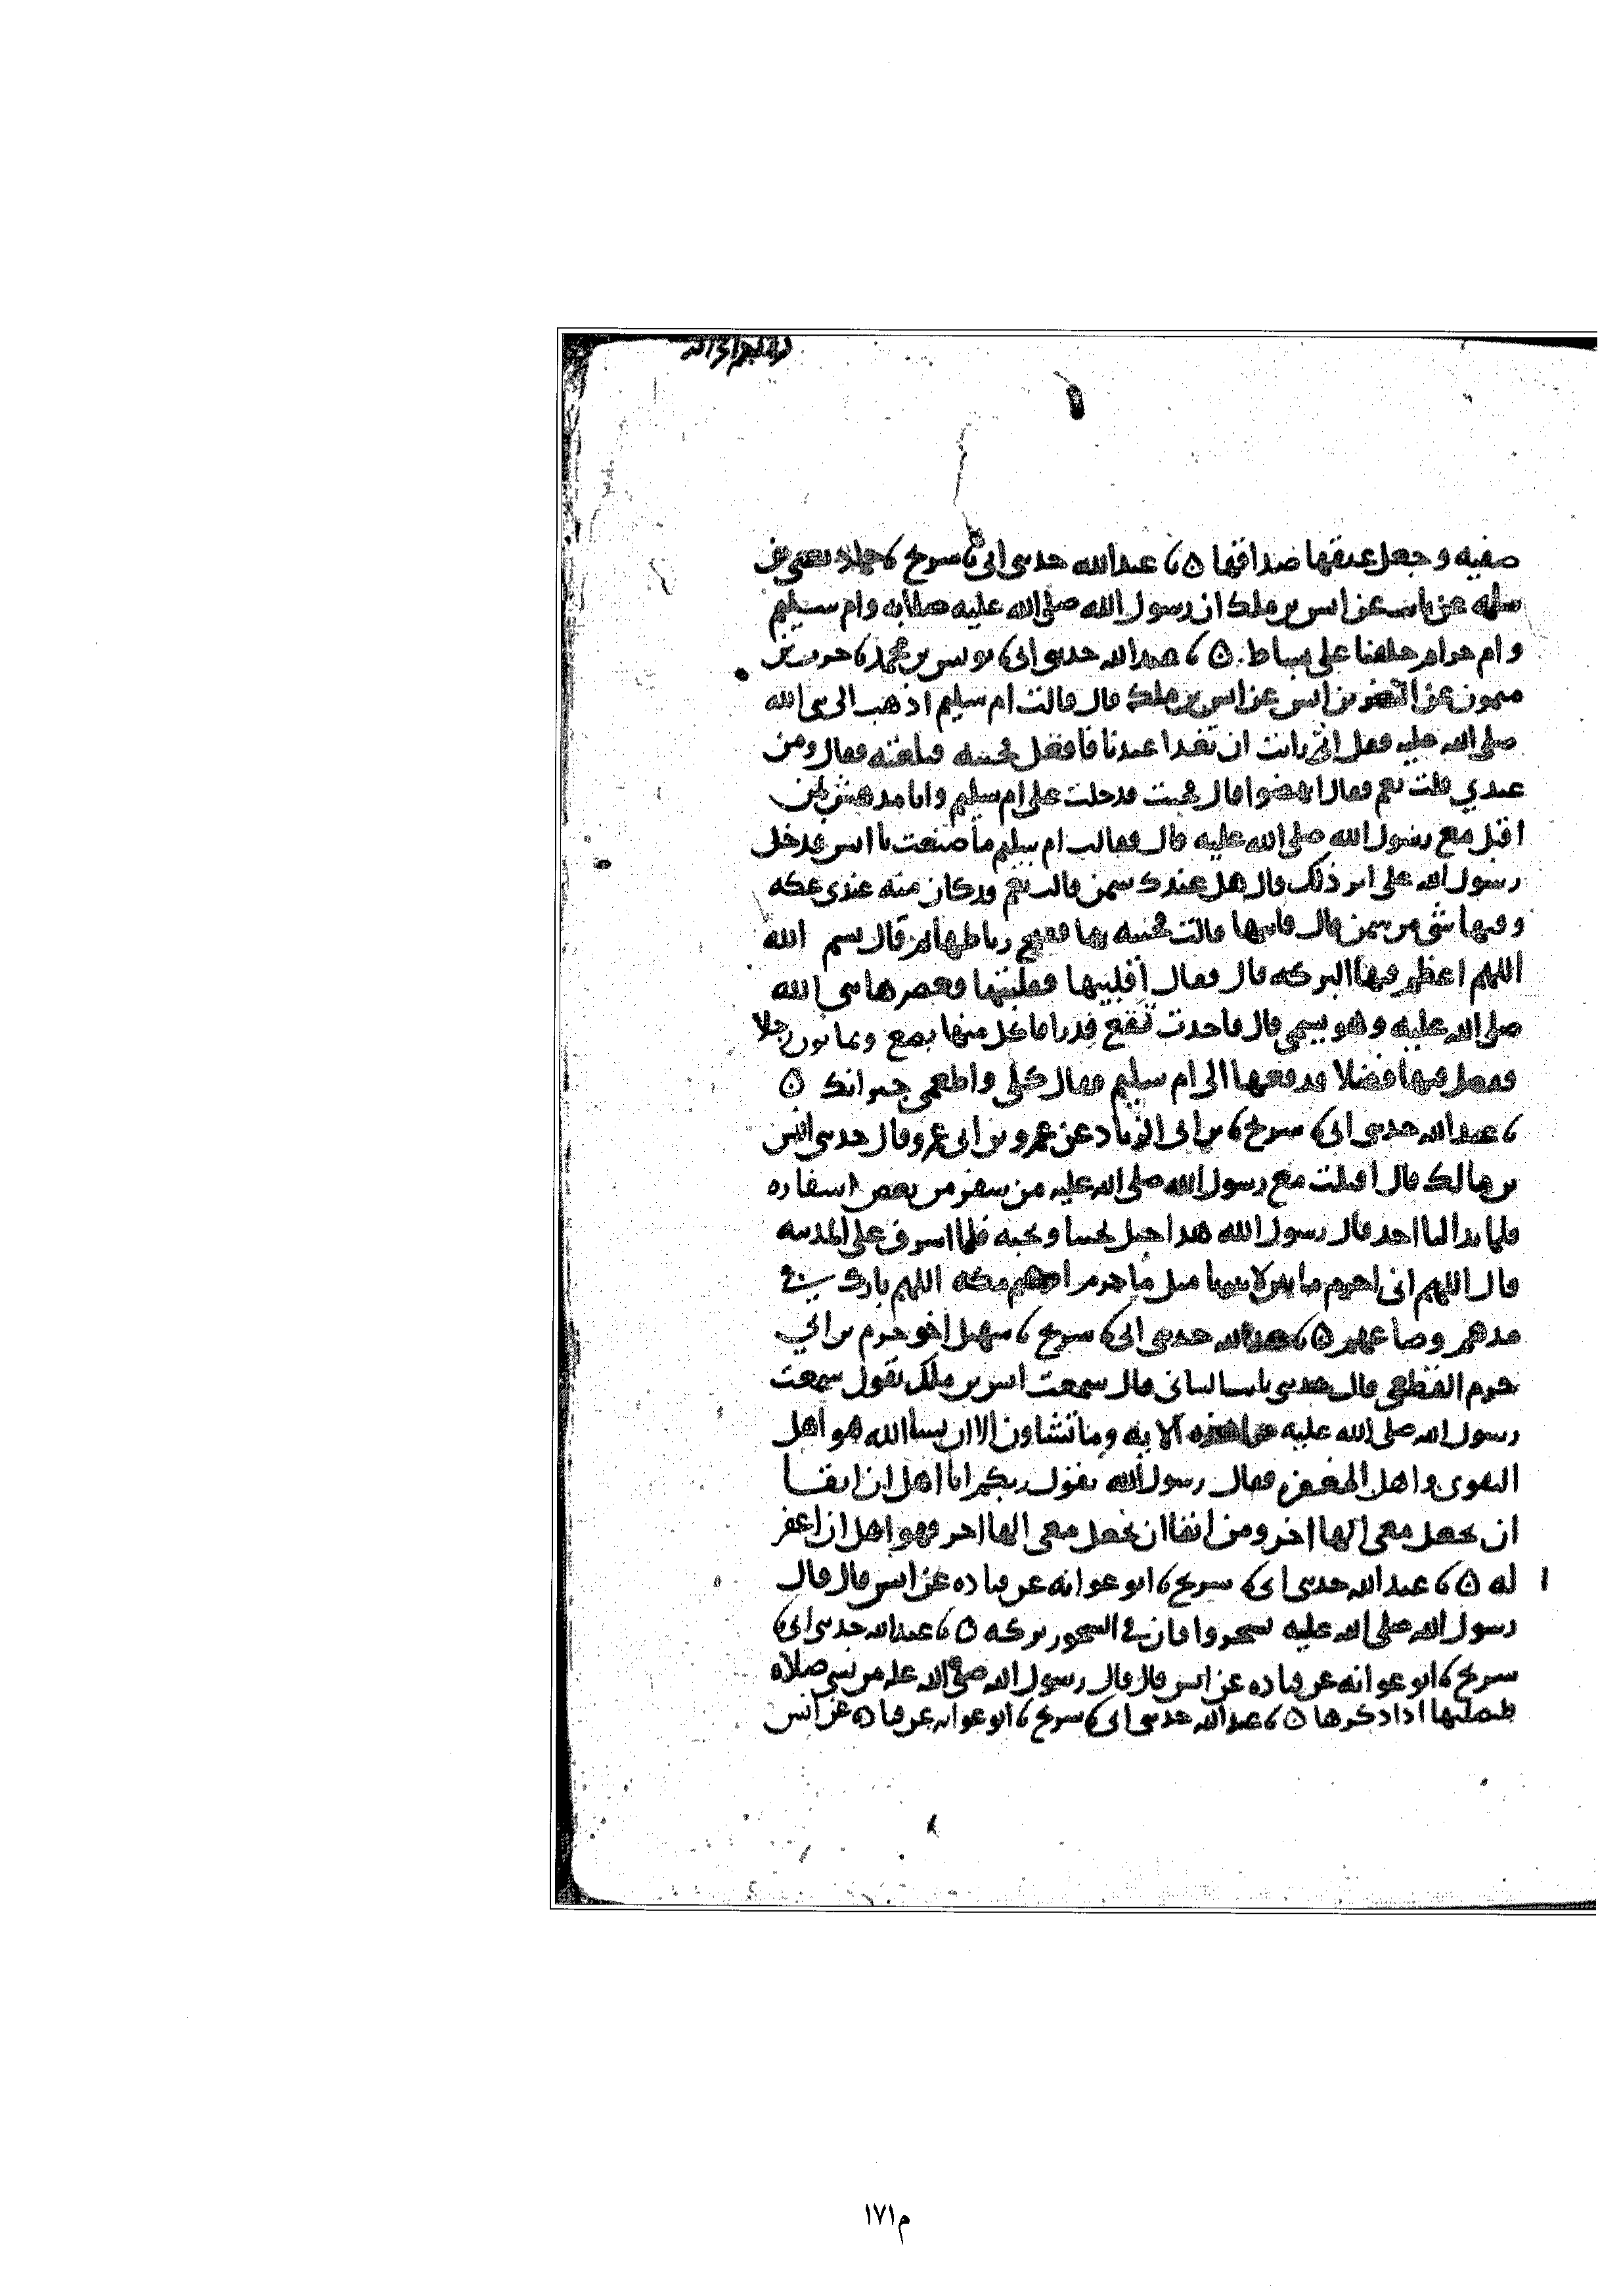 صفيه وجعل عتقها صداقها ٥ ثنا عبد الله حدثني ابي ثنا سريج ثنا حماد يعني بن
سلمه عن ثابت عن انس بن ملك ان رسول الله صلى الله عليه صلا به وام سليم
وام حرام خلفنا على بساط ٥ ثنا عبد الله حدثني ابي ثنا يونس بن محمد ثنا حرب بن
ميمون عن النضر بن انس عن انس بن ملك قال قالت ام سليم اذهب الى نبي الله
صلى الله عليه فقل ان رايت ان تغدا عندنا فافعل فجئته فبلغته فقال ومن
عندي قلت نعم فقال انهضوا قال فجئت فدخلت على ام سليم وانا مدهش لمن
اقبل مع رسول الله صلى الله عليه قال فقالت ام سليم ما صنعت يا انس فدخل
رسول الله على اثر ذلك قال هل عندك سمن قالت نعم قد كان منه عندي عكه
وفيها شي من سمن قال فاتيها قالت فجئته بها ففتح رباطها ثم قال بسم الله
اللهم اعظم فيها البركه قال فقال اقلبيها فقلبتها فعصرها نبي الله
صلى الله عليه وهو يسمي قال فاخذت نقع قدر فاكل منها بضع وثمانون رجلا
ففضل فيها فضلا فدفعها الى ام سليم فقال كلي واطعمي جيرانك ٥
ثنا عبد الله حدثني ابي ثنا سريج ثنا بن ابي الزناد عن عمرو بن ابي عمرو قال حدثني انس
بن مالك قال اقبلت مع رسول الله صلى الله عليه من سفر من بعض اسفاره
فلما بدا لنا احد قال رسول الله هذا جبل يحبنا ونحبه فلما اشرف على المدينه
قال اللهم اني احرم ما بين لابتيها مثل ما حرم ابراهيم مكه اللهم بارك في
مدهم وصاعهم ٥ ثنا عبد الله حدثني ابي ثنا سريج ثنا سهيل اخو حزم بن ابي
حزم القطعي قال حدثني ثابت البناني قال سمعت انس بن ملك يقول سمعت
رسول الله صلى الله عليه قرا هذه الايه وما تشاون الا ان يشا الله هو اهل
التقوى واهل المغفره فقال رسول الله يقول ربكم انا اهل ان اتقا
ان يجعل معي الها اخر ومن اتقا ان يجعل معي الها اخر فهو اهل ان اغفر
له ٥ ثنا عبد الله حدثني ابي ثنا سريج ثنا ابو عوانه عن قتاده عن انس قال قال
رسول الله صلى الله عليه تسحروا فان في السحور بركه ٥ ثنا عبد الله حدثني ابي ثنا
سريج ثنا ابو عوانه عن قتاده عن انس قال قال رسول الله صلى الله عليه من نسي صلاه
فليصليها اذا ذكرها ٥ ثنا عبد الله حدثني ابي ثنا سريج ثنا ابو عوانه عن قتاده عن انس
م١٧١